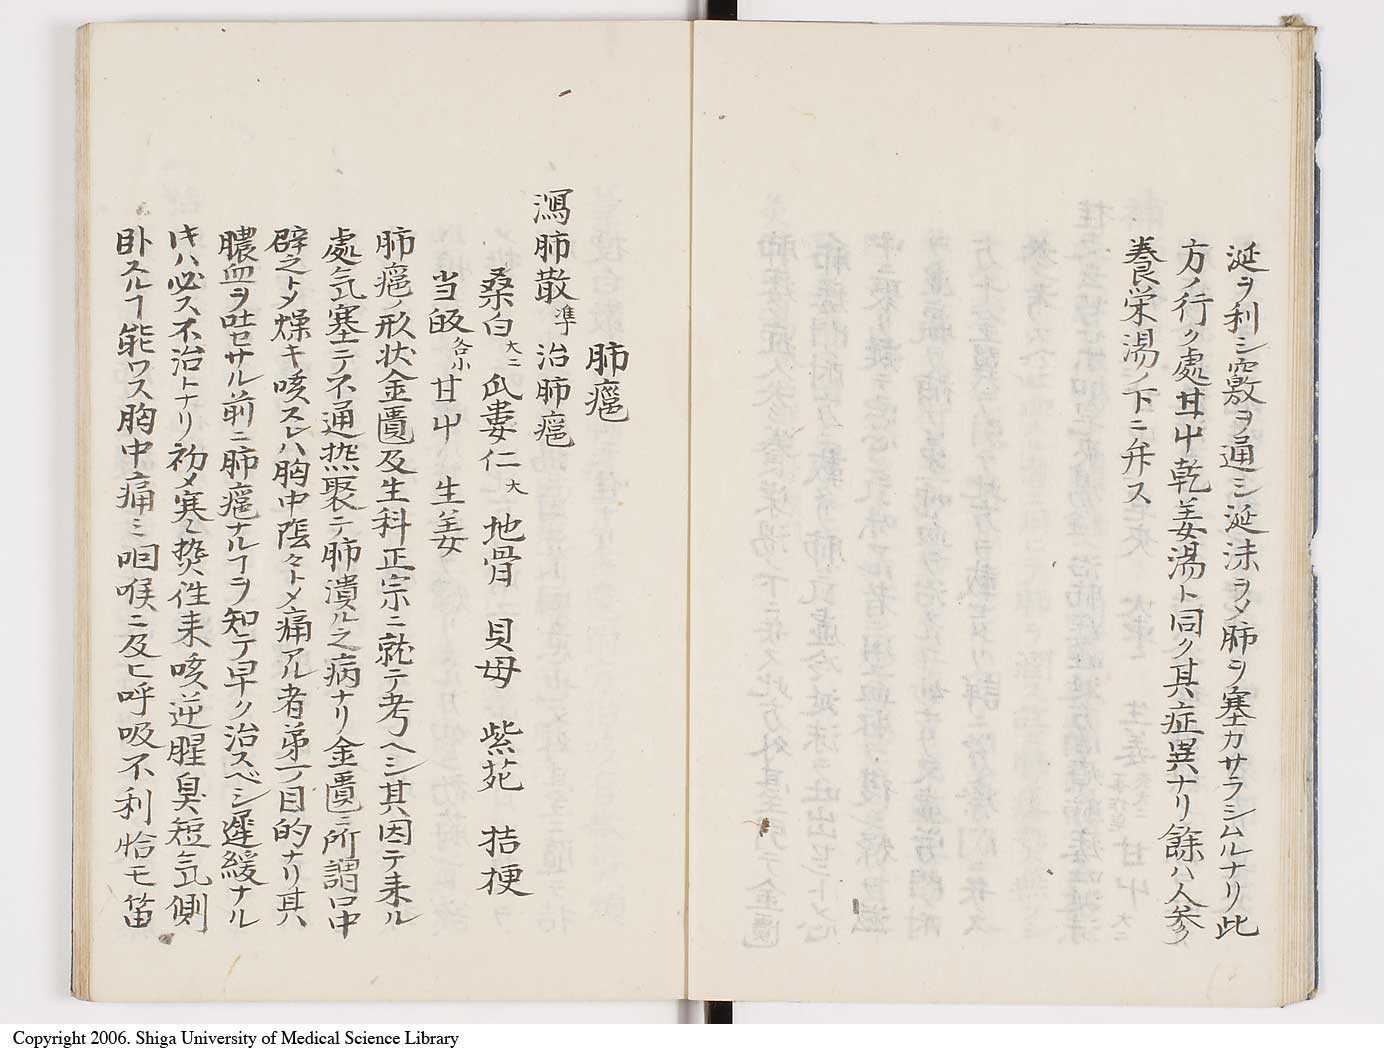 涎ヲ利シ竅ヲ通シ涎沫ヲメ肺ヲ塞カサラシムルナリ此
方ノ行ク處甘中乾姜湯ト同ク其症異ナリ餘ハ人参
養栄湯ノ下ニ弁ス
肺癰
瀉肺散準治肺癰
桑白大二 瓜蔞仁大 地骨 貝母 紫苑 桔梗
当皈各小 甘中 生姜
肺癰ノ形状金匱及生科正宗ニ就テ考ヘシ其因テ来ル
處気塞テ不通熱聚テ肺潰ル之病ナリ金匱ニ所謂口中
辟之トメ燥キ咳スレハ胸中隂々トメ痛アル者第一目的ナリ其
膿血ヲ吐セサル前ニ肺癰ナルヿヲ知テ早ク治スベシ遅緩ナル
𪜈ハ必ス不治トナリ初メ寒ミ熱往来咳逆腥臭短気側
卧スルヿ能ワス胸中痛ミ咽喉ニ及ヒ呼吸不利恰モ笛
Copyright 2006. Shiga University of Medical Science Library